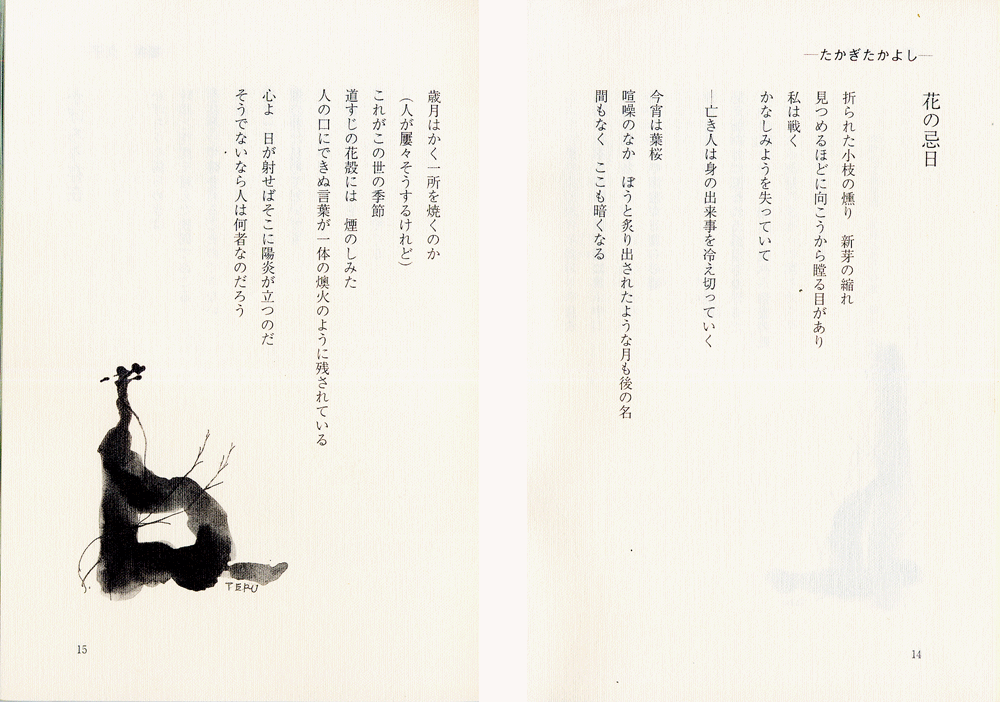 ―たかぎたかよし―
花の忌日
折られた小枝の燻り　新芽の縮れ
見つめるほどに向こうから瞠る目があり
私は戦く
かなしみようを失っていて
―亡き人は身の出来事を冷え切っていく
今宵は葉桜
喧噪のなか　ぼうと炙り出されたような月も後の名
間もなく　ここも暗くなる
14
歳月はかく一所を焼くのか
（人が屢々そうするけれど）
これがこの世の季節
道すじの花殻には　煙のしみた
人の口にできぬ言葉が一体の燠火のように残されている
心よ　日が射せばそこに陽炎が立つのだ
そうでないなら人は何者なのだろう
TERU
15